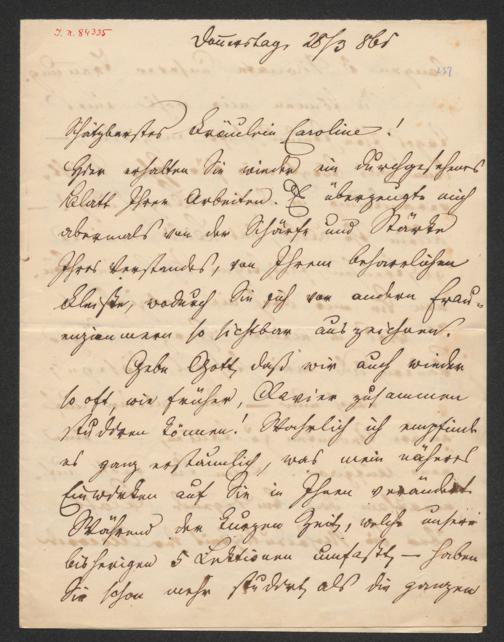 I. N. 84335
Donnerstag, 28/3 865
237
Schätzbarstes Fräulein Caroline!
Hier erhalten Sie wieder ein durchgesehenes
Blatt Ihrer Arbeiten. Es überzeugte mich
abermals von der Schärfe und Stärke
Ihres Verstandes, von Ihrem beharrlichen
Fleiße, wodurch Sie sich vor andern Frau-
enzimmern so sichtbar auszeichnen.
Gebe Gott, daß wir auch wieder
so oft, wie früher, Clavier zusammen
studiren können! Wahrlich ich empfinde
es ganz erstaunlich, was mein näheres
Einwirken auf Sie in Ihnen verändert
Während der kurzen Zeit, welche unsere
bisherigen 5 Lektionen umfaßt, — haben
Sie schon mehr studirt, als die ganzen